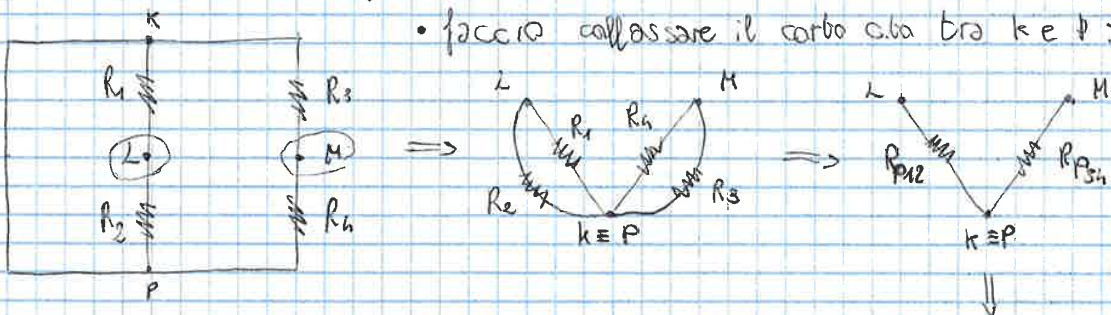 • faccio collassare il corto c.to tra k e P:
K
R1
R3
L
M
R2
R4
P
⇒
L
M
R1
R4
R2
R3
K ≡ P
⇒
L
M
Rp12
Rp34
K ≡ P
⇓